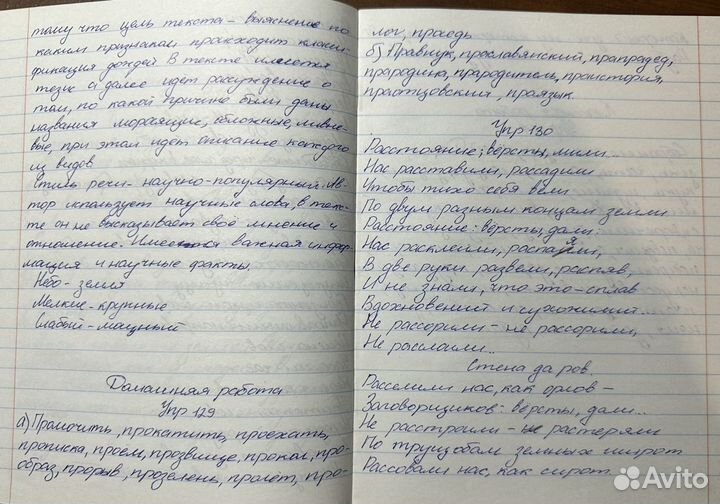 тому что цель текста - выяснение по
каким признакам происходит класси-
фикация дождей В тексте имеется
тезис а далее идет рассуждение о
том, по какой причине были даны
названия моросящие, обложные, ливне-
вые, при этом идет описание каждого
из видов
Стиль речи - научно-популярный. Ав-
тор использует научные слова, в текс-
те он не высказывает своё мнение и
отношение. Имеется важная инфор-
мация и научные факты.
Небо - земля
Мелкие - крупные
Слабый - мощный
Домашняя работа
Упр 129
а) Промочить, прокатить, проехать,
прописка, проём, прозвище, прокол, про-
образ, прорыв, прозелень, пролёт, про-
лог, проседь
б) Правнук, праславянский, прапрадед,
прародина, прародитель, праистория,
праотцовский, праязык.
Упр 130
Расстояние; вёрсты, мили...
Нас расставили, рассадили
Чтобы тихо себя вели
По двум разным концам земли
Расстояние: вёрсты, дали:
Нас расклеили, распаяли,
В две руки развели, распяв,
И не знали, что это - сплав
Вдохновений и сухожилий...
Не рассорили - не рассорили,
Не расслоили..
Стена да ров.
Расселили нас, как орлов -
Заговорщиков: вёрсты, дали...
Не расстроили - не растеряли
По трущобам земных широт
Рассовали нас, как сирот
Avito